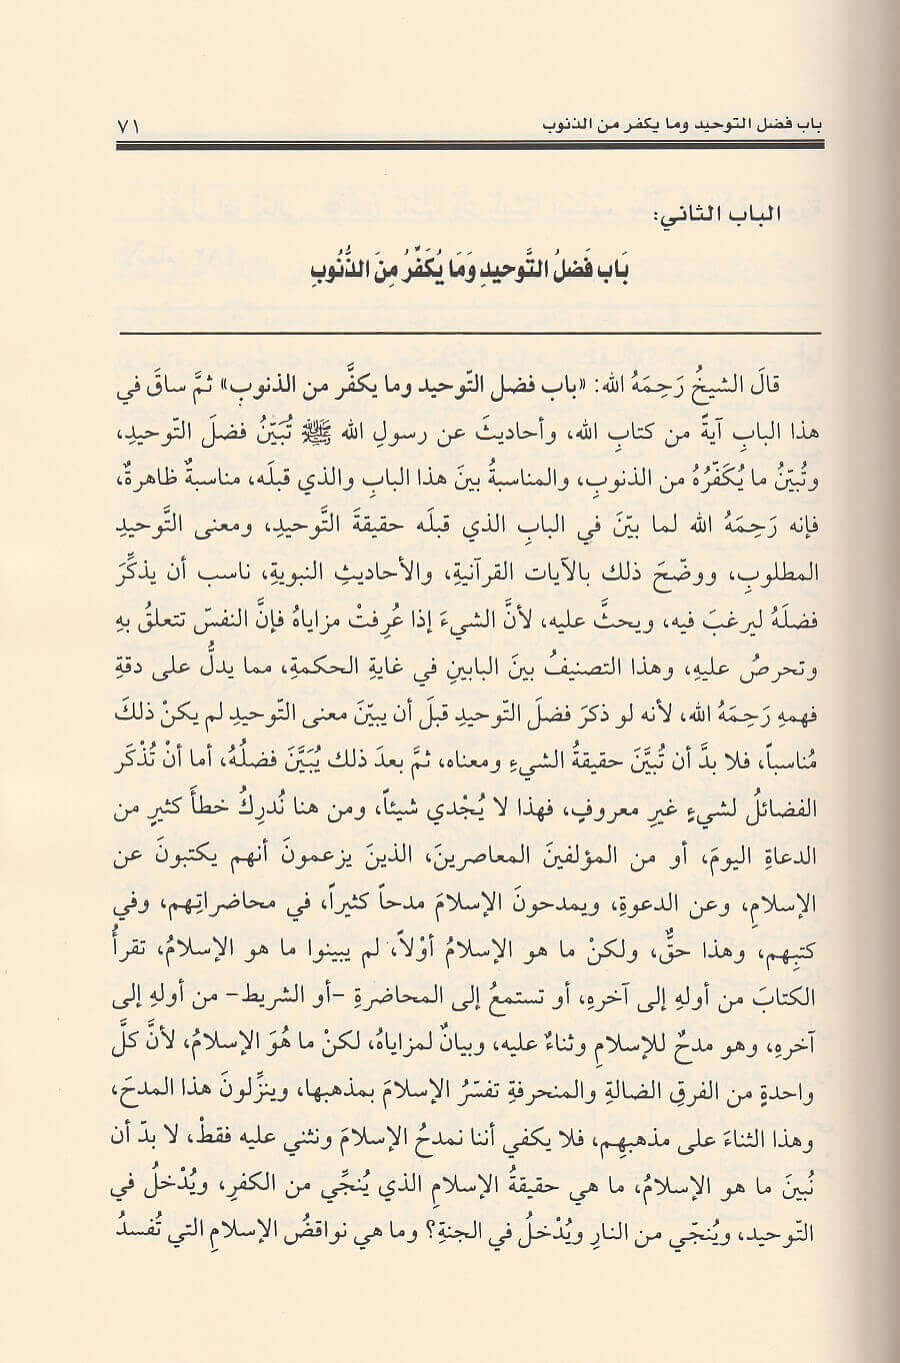 باب فضل التوحيد وما يكفر من الذنوب ٧١
الباب الثاني:
بَاب فَضلُ التَّوحيدِ وَمَا يُكَفِّرُ مِنَ الذُّنُوبِ
قالَ الشيخُ رَحِمَهُ الله: «باب فضل التّوحيد وما يكفَّر من الذنوبِ» ثمَّ ساقَ في
هذا البابِ آيةً من كتابِ الله، وأحاديثَ عن رسولِ الله ﷺ تُبَيّنُ فضلَ التّوحيدِ،
وتُبيّنُ ما يُكَفّرُهُ من الذنوبِ، والمناسبةُ بينَ هذا البابِ والذي قبلَه، مناسبةٌ ظاهرةٌ،
فإنه رَحِمَهُ الله لما بيّنَ في البابِ الذي قبلَه حقيقةَ التَّوحيدِ، ومعنى التَّوحيدِ
المطلوبِ، ووضّحَ ذلك بالآيات القرآنيةِ، والأحاديثِ النبويةِ، ناسب أن يذكِّرَ
فضلَهُ ليرغبَ فيه، ويحثَّ عليه، لأنَّ الشيءَ إذا عُرِفتْ مزاياهُ فإنَّ النفسّ تتعلقُ بهِ
وتحرصُ عليهِ، وهذا التصنيفُ بينَ البابينِ في غايةِ الحكمةِ، مما يدلُّ على دقةِ
فهمهِ رَحِمَهُ الله، لأنه لو ذكرَ فضلَ التّوحيدِ قبلَ أن يبيّنَ معنى التوحيدِ لم يكنْ ذلكَ
مُناسباً، فلا بدَّ أن تُبيَّنَ حقيقةُ الشيءِ ومعناه، ثمَّ بعدَ ذلك يُبَيَّنَ فضلُهُ، أما أنْ تُذْكَر
الفضائلُ لشيءٍ غيرِ معروفٍ، فهذا لا يُجْدي شيئاً، ومن هنا نُدرِكُ خطأَ كثيرٍ من
الدعاةِ اليومَ، أو من المؤلفينَ المعاصرينَ، الذينَ يزعمونَ أنهم يكتبونَ عن
الإسلامِ، وعن الدعوةِ، ويمدحونَ الإسلامَ مدحاً كثيراً، في محاضراتِهم، وفي
كتبِهم، وهذا حقٌّ، ولكنْ ما هو الإسلامُ أوْلاً، لم يبينوا ما هو الإسلامُ، تقرأُ
الكتابَ من أولهِ إلى آخرهِ، أو تستمعُ إلى المحاضرةِ -أو الشريط- من أولهِ إلى
آخرهِ، وهو مدحٌ للإسلامِ وثناءٌ عليه، وبيانٌ لمزاياهُ، لكنْ ما هُوَ الإسلامُ، لأنَّ كلَّ
واحدةٍ من الفرقِ الضالةِ والمنحرفةِ تفسّرُ الإسلامَ بمذهبها، وينزِّلونَ هذا المدحَ،
وهذا الثناءَ على مذهبهِم، فلا يكفي أننا نمدحُ الإسلامَ ونثني عليه فقطْ، لا بدّ أن
نُبينَ ما هو الإسلامُ، ما هي حقيقةُ الإسلامِ الذي يُنجِّي من الكفرِ، ويُدْخلُ في
التّوحيد، ويُنجّي من النارِ ويُدْخلُ في الجنةِ؟ وما هي نواقضُ الإسلامِ التي تُفسدُ